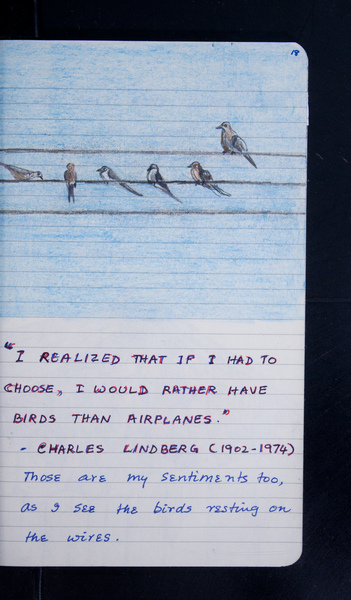 18
"I REALIZED THAT IF I HAD TO
CHOOSE, I WOULD RATHER HAVE
BIRDS THAN AIRPLANES."
- CHARLES LINDBERG (1902-1974)
Those are my sentiments too,
as I see the birds resting on
the wires.